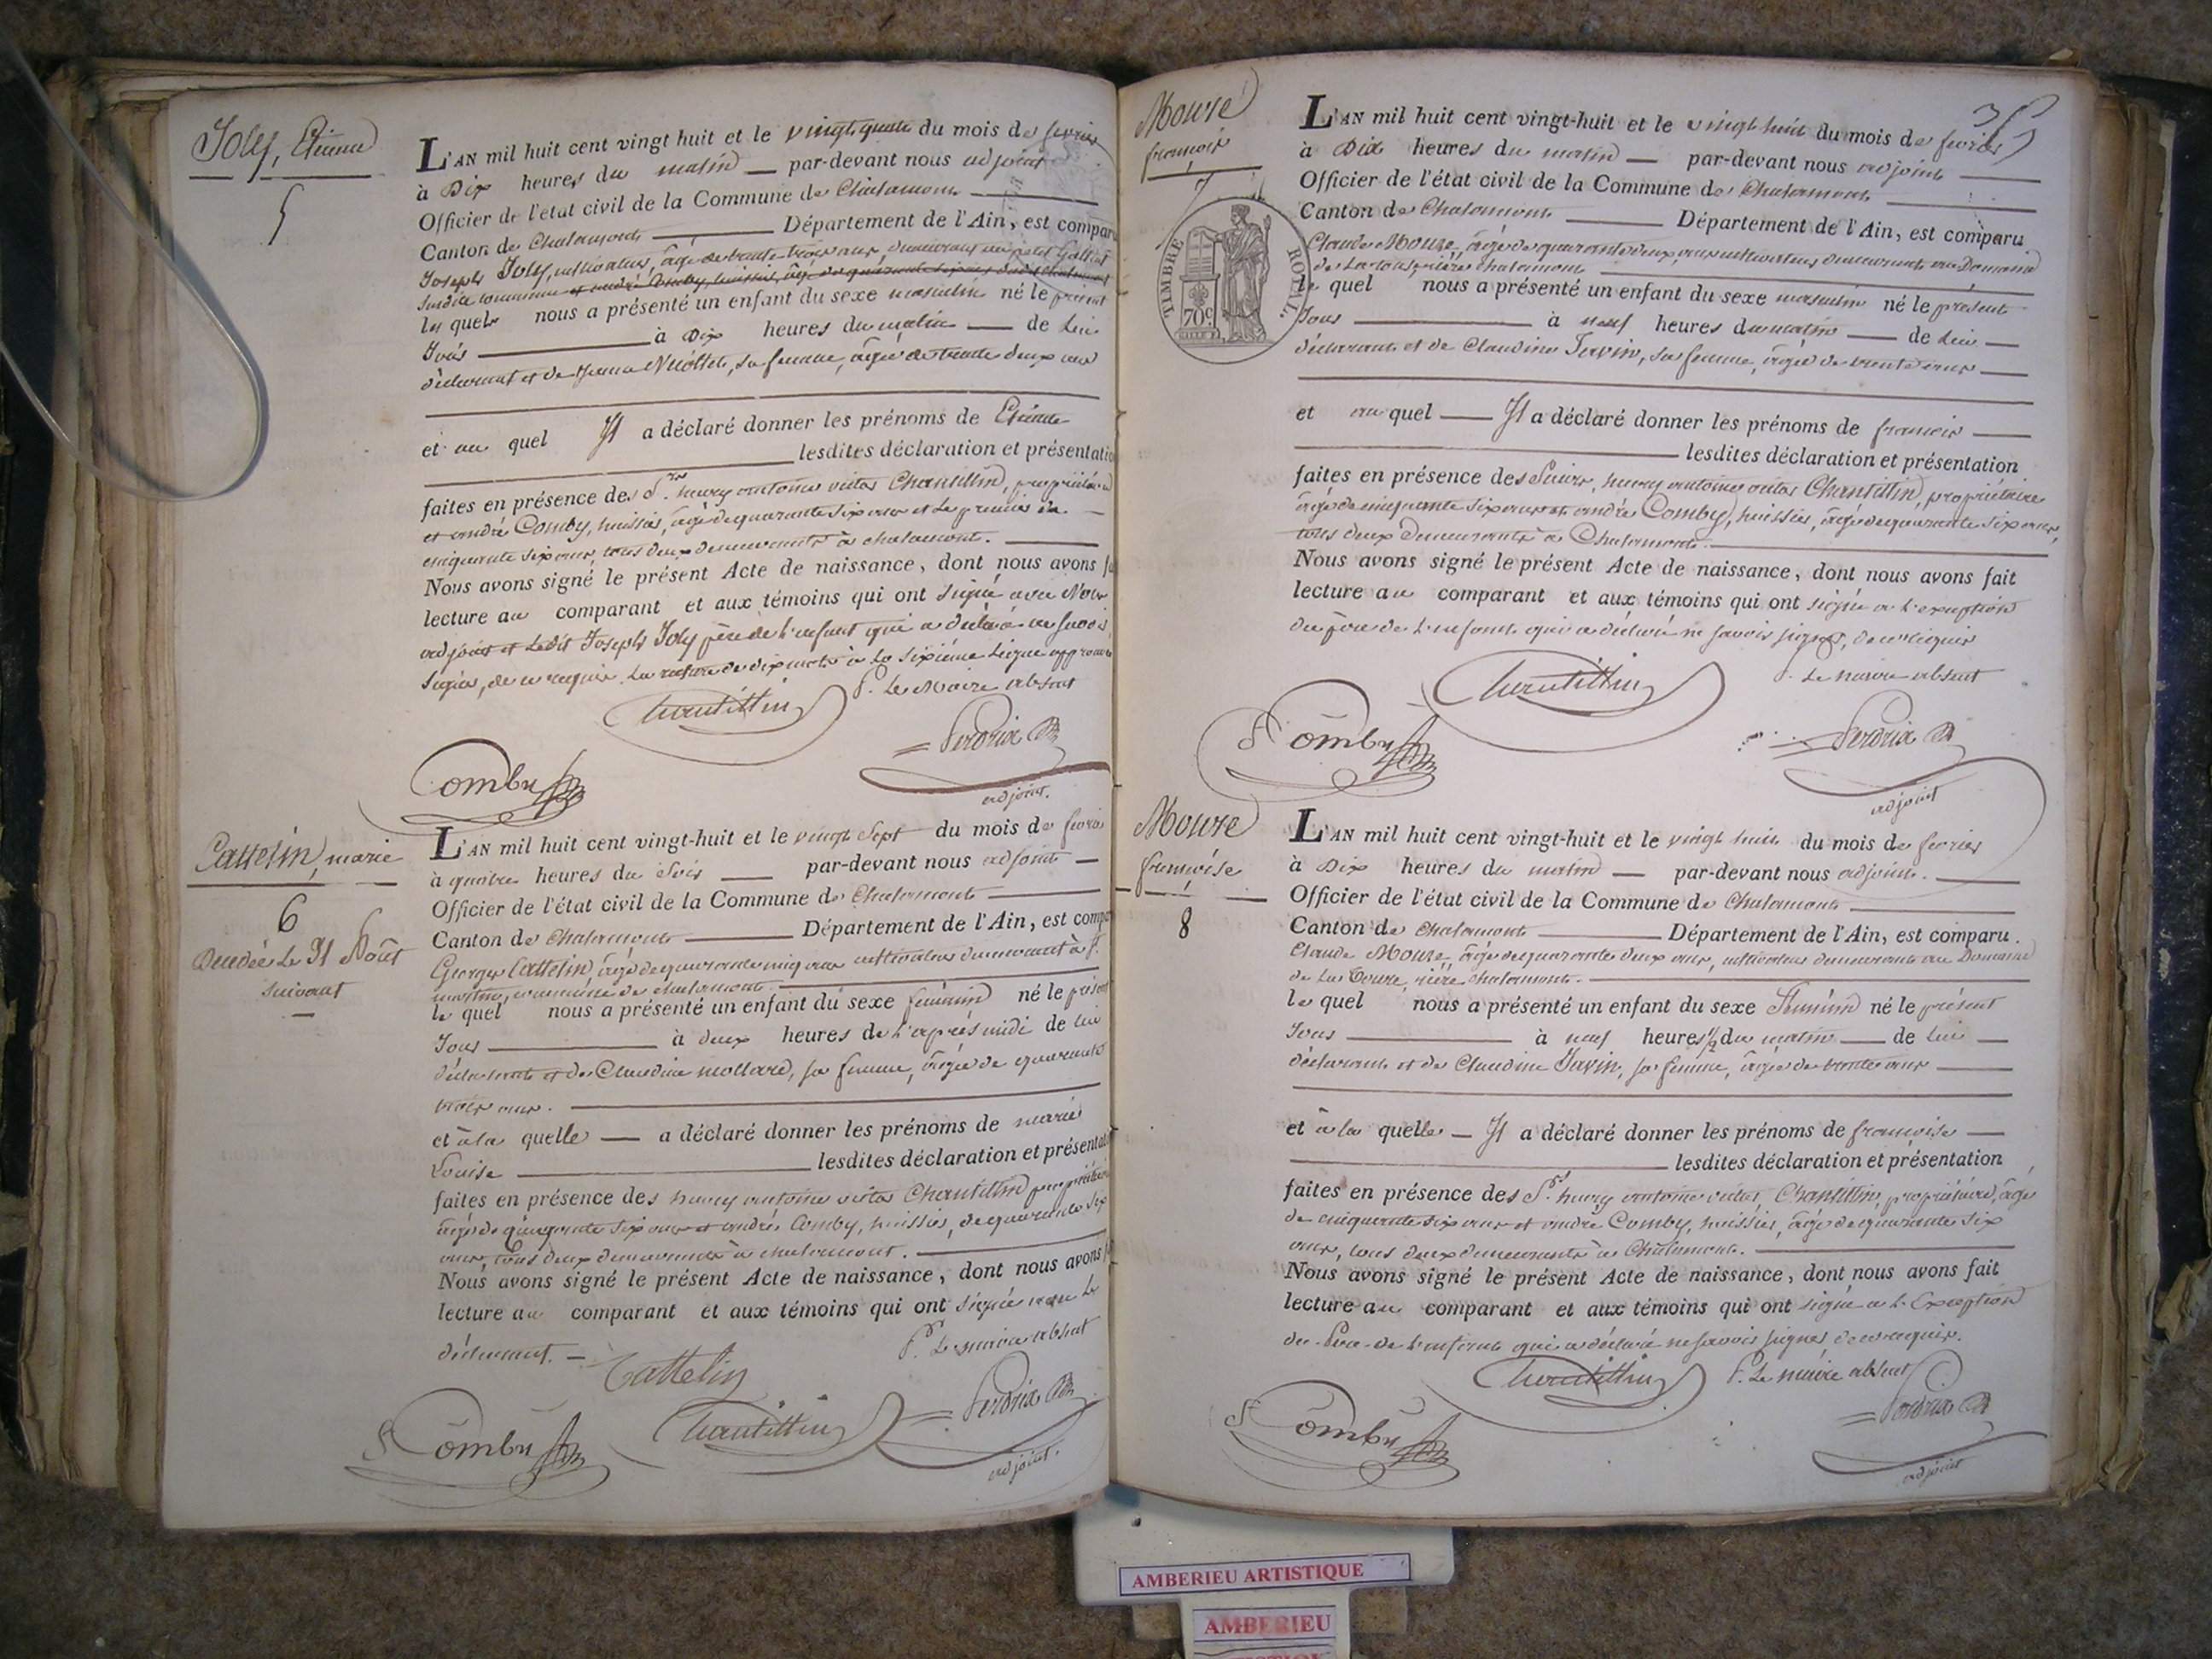 Joly, Etienne
5
L'AN mil huit cent vingt huit et le vingt quatre du mois de fevrier
à Dix heures du matin par-devant nous adjoint
Officier de l'état civil de la Commune de Chalamont
Canton de Chalamont Département de l'Ain, est comparu
Joseph Joly, cultivateur, âgé de trente trois ans, demeurant au petit
susdite commune et andré Comby, huissier, âgé de quarante six ans
les quels nous a présenté un enfant du sexe masculin né le présent
Jour à Dix heures du matin de lui
déclarant et de sa femme, âgée de trente deux ans
et au quel Il a déclaré donner les prénoms de Etienne
lesdites déclaration et présentation
faites en présence des Srs henry antoine victor Chantillin, propriétaire
et andré Comby, huissier, âgé de quarante six ans et le premier de
cinquante six ans, tous deux demeurants à chalamont.
Nous avons signé le présent Acte de naissance, dont nous avons fait
lecture au comparant et aux témoins qui ont signé avec Nous
adjoint et ledit Joseph Joly père de l'enfant qui a déclaré ne savoir
signer, de ce requis. La rature de dix mots à la sixième ligne approuvée
P. Le Maire absent
Chantillin
Perdrix
Comby
adjoint.
Cattelin, marie
6
Decedée le 31 Août
suivant
L'AN mil huit cent vingt-huit et le vingt Sept du mois de fevrier
à quatre heures du Soir par-devant nous adjoint
Officier de l'état civil de la Commune de Chalamont
Canton de Chalamont Département de l'Ain, est comparu
George Cattelin, âgé de quarante cinq ans cultivateur demeurant à St.
martin, commune de chalamont.
le quel nous a présenté un enfant du sexe féminin né le présent
Jour à deux heures de l'après midi de lui
déclarant et de Claudine mollard, sa femme, âgée de quarante
trois ans.
et à la quelle a déclaré donner les prénoms de marie
Louise lesdites déclaration et présentation
faites en présence des henry antoine victor Chantillin propriétaire
âgé de cinquante six ans et andré Comby, huissier, de quarante six
ans, tous deux demeurants à chalamont.
Nous avons signé le présent Acte de naissance, dont nous avons fait
lecture au comparant et aux témoins qui ont signé avec le
déclarant.
P. Le maire absent
Cattelin
Comby
Chantillin
Perdrix
adjoint.
Mouze
françois
7
TIMBRE ROYAL.
70c
L'AN mil huit cent vingt-huit et le vingt huit du mois de fevrier
à Dix heures du matin par-devant nous adjoint
Officier de l'état civil de la Commune de Chalamont
Canton de Chalamont Département de l'Ain, est comparu
Claude Mouze, âgé de quarante deux ans cultivateur demeurant au Domaine
de La rière chalamont
le quel nous a présenté un enfant du sexe masculin né le présent
Jour à neuf heures du matin de lui
déclarant et de Claudine sa femme, âgée de trente ans
et au quel Il a déclaré donner les prénoms de françois
lesdites déclaration et présentation
faites en présence des Sieurs, henry antoine victor Chantillin, propriétaire
âgé de cinquante six ans et andré Comby, huissier, âgé de quarante six ans,
tous deux demeurants à Chalamont.
Nous avons signé le présent Acte de naissance, dont nous avons fait
lecture au comparant et aux témoins qui ont signé à l'exception
du père de l'enfant qui a déclaré ne savoir signer, de ce requis
P. Le maire absent
Chantillin
Comby
Perdrix
adjoint
Mouze
françoise
8
L'AN mil huit cent vingt-huit et le vingt huit du mois de fevrier
à Dix heures du matin par-devant nous adjoint.
Officier de l'état civil de la Commune de Chalamont
Canton de Chalamont Département de l'Ain, est comparu.
Claude Mouze, âgé de quarante deux ans, cultivateur demeurant au Domaine
de La rière chalamont.
le quel nous a présenté un enfant du sexe Féminin né le présent
Jour à neuf heures 1/2 du matin de lui
déclarant et de Claudine sa femme, âgée de trente ans
et à la quelle Il a déclaré donner les prénoms de françoise
lesdites déclaration et présentation
faites en présence des Srs. henry antoine victor, Chantillin, propriétaire, âgé
de cinquante six ans et andré Comby, huissier, âgé de quarante six
ans, tous deux demeurants à Chalamont.
Nous avons signé le présent Acte de naissance, dont nous avons fait
lecture au comparant et aux témoins qui ont signé à l'Exception
du Père de l'enfant qui a déclaré ne savoir signer, de ce requis.
Chantillin
P. Le maire absent
Comby
Perdrix
adjoint
AMBERIEU ARTISTIQUE
AMBERIEU